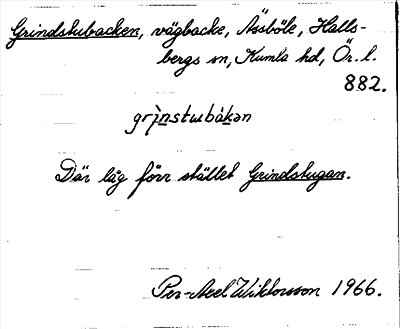 Grindstubacken, vägbacke, Åssböle, Halls-
bergs sn, Kumla hd, Ör. l.
882.
grìnstubákən
Där låg förr stället Grindstugan.
Per-Axel Wiktorsson 1966.